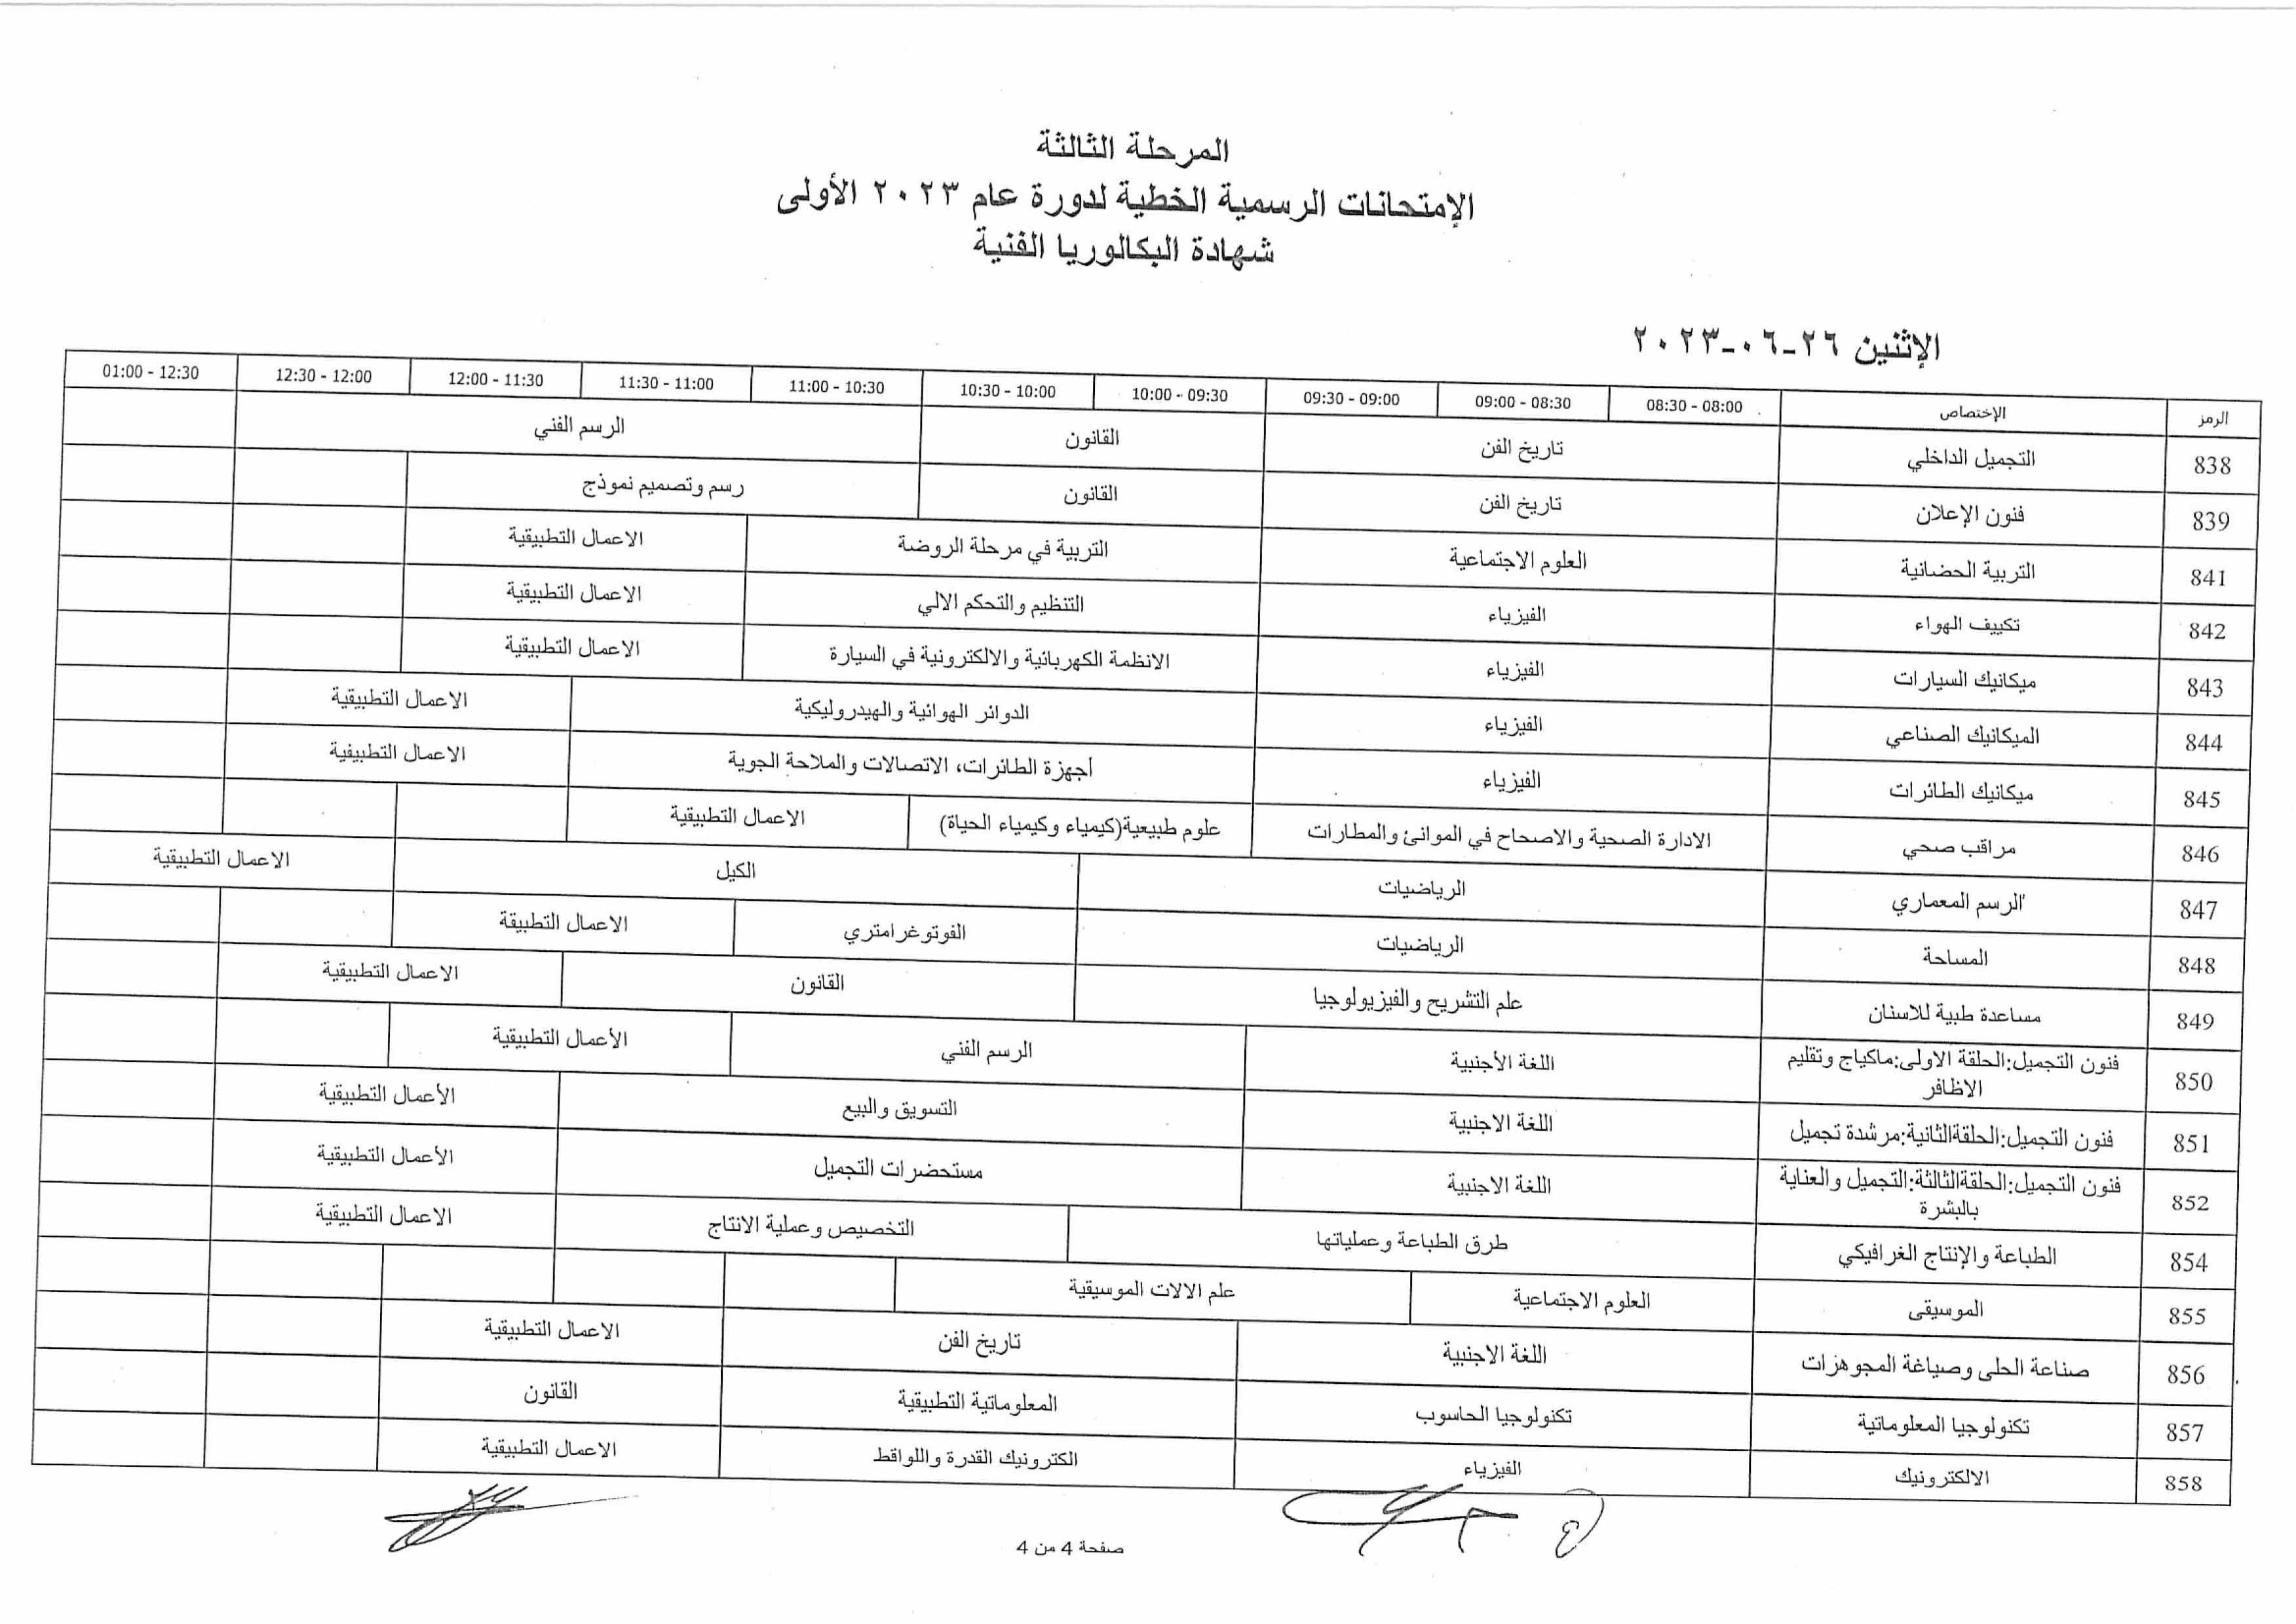 المرحلة الثالثة
الإمتحانات الرسمية الخطية لدورة عام ٢٠٢٣ الأولى
شهادة البكالوريا الفنية
الإثنين ٢٦-٠٦-٢٠٢٣
الرمز الإختصاص 08:30 - 08:00 09:00 - 08:30 09:30 - 09:00 10:00 - 09:30 10:30 - 10:00 11:00 - 10:30 11:30 - 11:00 12:00 - 11:30 12:30 - 12:00 01:00 - 12:30
838 التجميل الداخلي تاريخ الفن القانون الرسم الفني
839 فنون الإعلان تاريخ الفن القانون رسم وتصميم نموذج
841 التربية الحضانية العلوم الاجتماعية التربية في مرحلة الروضة الاعمال التطبيقية
842 تكييف الهواء الفيزياء التنظيم والتحكم الالي الاعمال التطبيقية
843 ميكانيك السيارات الفيزياء الانظمة الكهربائية والالكترونية في السيارة الاعمال التطبيقية
844 الميكانيك الصناعي الفيزياء الدوائر الهوائية والهيدروليكية الاعمال التطبيقية
845 ميكانيك الطائرات الفيزياء أجهزة الطائرات، الاتصالات والملاحة الجوية الاعمال التطبيقية
846 مراقب صحي الادارة الصحية والاصحاح في الموانئ والمطارات علوم طبيعية(كيمياء وكيمياء الحياة) الاعمال التطبيقية
847 الرسم المعماري الرياضيات الكيل الاعمال التطبيقية
848 المساحة الرياضيات الفوتوغرامتري الاعمال التطبيقة
849 مساعدة طبية للاسنان علم التشريح والفيزيولوجيا القانون الاعمال التطبيقية
850 فنون التجميل:الحلقة الاولى:ماكياج وتقليم
الاظافر اللغة الأجنبية الرسم الفني الأعمال التطبيقية
851 فنون التجميل:الحلقةالثانية:مرشدة تجميل اللغة الاجنبية التسويق والبيع الأعمال التطبيقية
852 فنون التجميل:الحلقةالثالثة:التجميل والعناية
بالبشرة اللغة الاجنبية مستحضرات التجميل الأعمال التطبيقية
854 الطباعة والإنتاج الغرافيكي طرق الطباعة وعملياتها التخصيص وعملية الانتاج الاعمال التطبيقية
855 الموسيقى العلوم الاجتماعية علم الالات الموسيقية
856 صناعة الحلى وصياغة المجوهرات اللغة الاجنبية تاريخ الفن الاعمال التطبيقية
857 تكنولوجيا المعلوماتية تكنولوجيا الحاسوب المعلوماتية التطبيقية القانون
858 الالكترونيك الفيزياء الكترونيك القدرة واللواقط الاعمال التطبيقية
صفحة 4 من 4